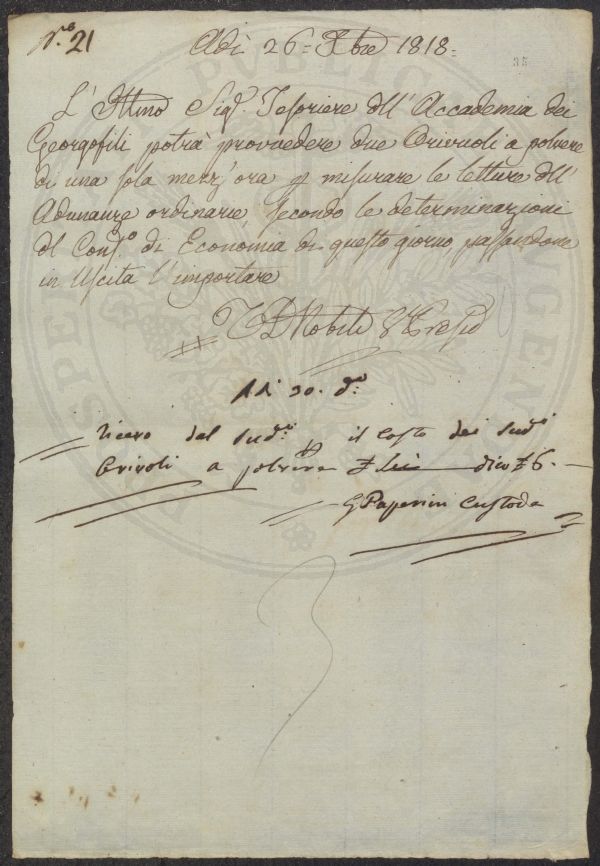 N.º 21
Adì 26 = Xbre 1818 =
35
L'Illmo Sig.r Tesoriere dell'Accademia dei
Georgofili potrà provvedere due Orivuoli a polvere
di una sola mezz'ora p misurare le letture dell'
Adunanze ordinarie, secondo le determinazioni
del Cons.o di Economia di questo giorno, passandone
in Uscita l'importare
Nobili Presid
Adi 30. do
Ricevo dal Sud.o p il Costo dei Sud.i
Orivoli a polvere £ Sei dico £ 6. —
G Paperini Custode